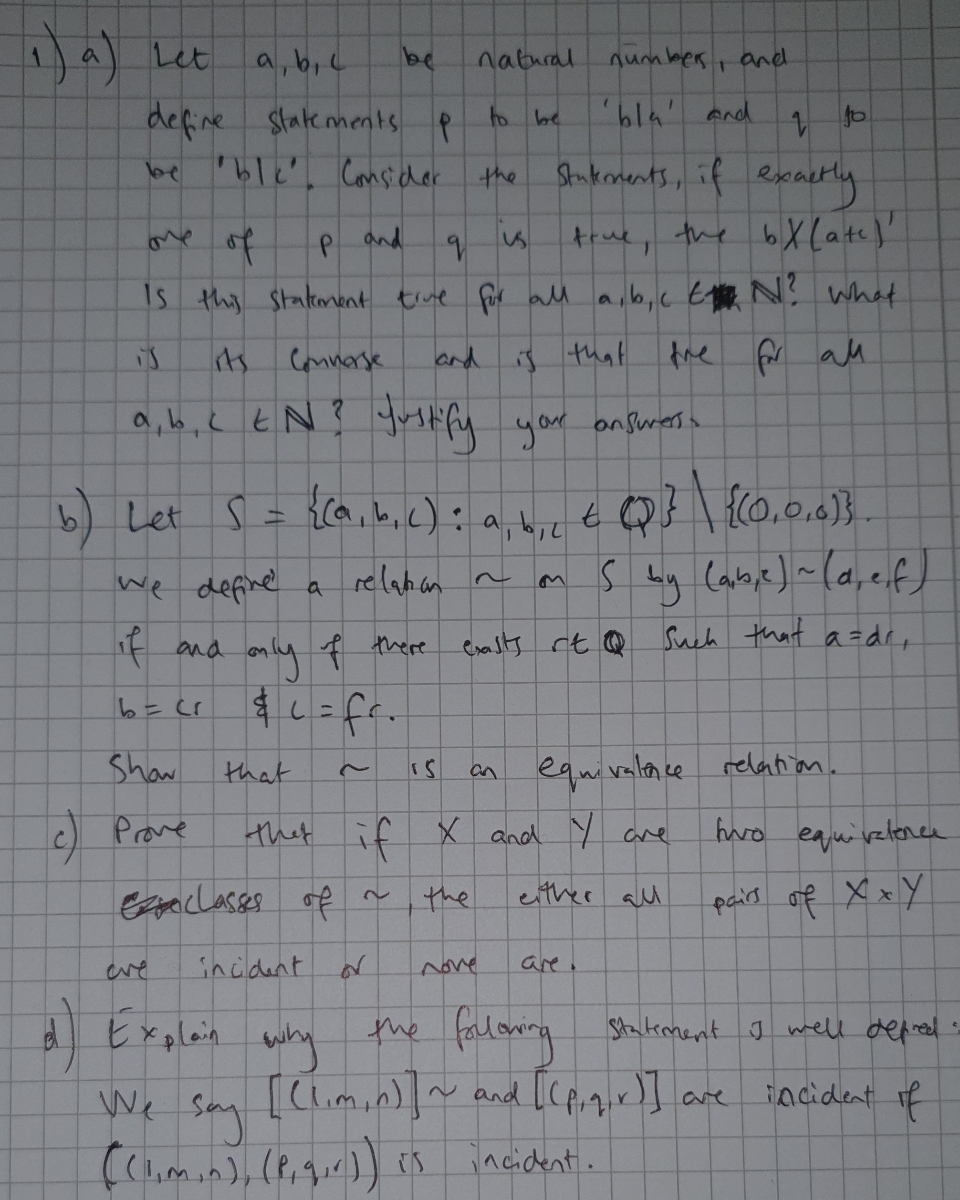 1) a) Let a,b,c be natural numbers, and
define statements p to be 'b|a' and q to
be 'b|c'. Consider the statements, if exactly
one of p and q is true, the b∤(a+c)'
Is this statement true for all a,b,c ∈ N? What
is its converse and is that true for all
a,b,c ∈ N? Justify your answers.
b) Let S = {(a,b,c) : a,b,c ∈ Q} \ {(0,0,0)}.
We define a relation ~ on S by (a,b,c) ~ (d,e,f)
if and only if there exists r ∈ Q such that a = dr,
b = er & c = fr.
Show that ~ is an equivalence relation.
c) Prove that if X and Y are two equivalence
classes of ~, the either all pairs of X × Y
are incident or none are.
d) Explain why the following statement is well defined:
We say [(l,m,n)]~ and [(p,q,r)] are incident if
((l,m,n), (p,q,r)) is incident.